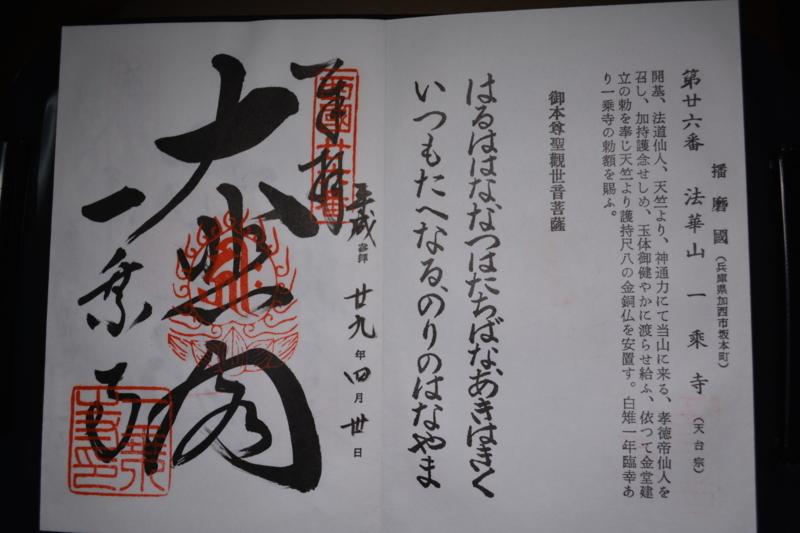 播磨國(兵庫県加西市坂本町)
第廿六番 法華山一乗寺(天台宗)
開基、法道仙人、天竺より、神通力にて当山に来る、孝徳帝仙人を
召し、加持護念せしめ、玉体御健やかに渡らせ給ふ、依つて金堂建
立の勅を奉じ天竺より護持尺八の金銅仏を安置す。白雉一年臨幸あ
り一乗寺の勅額を賜ふ。
御本尊聖觀世音菩薩
はるははな、なつはたちばな、あきはきく
いつもたへなる、のりのはなやま
奉拝
平成廿九年四月廿日
大悲閣
一乗寺